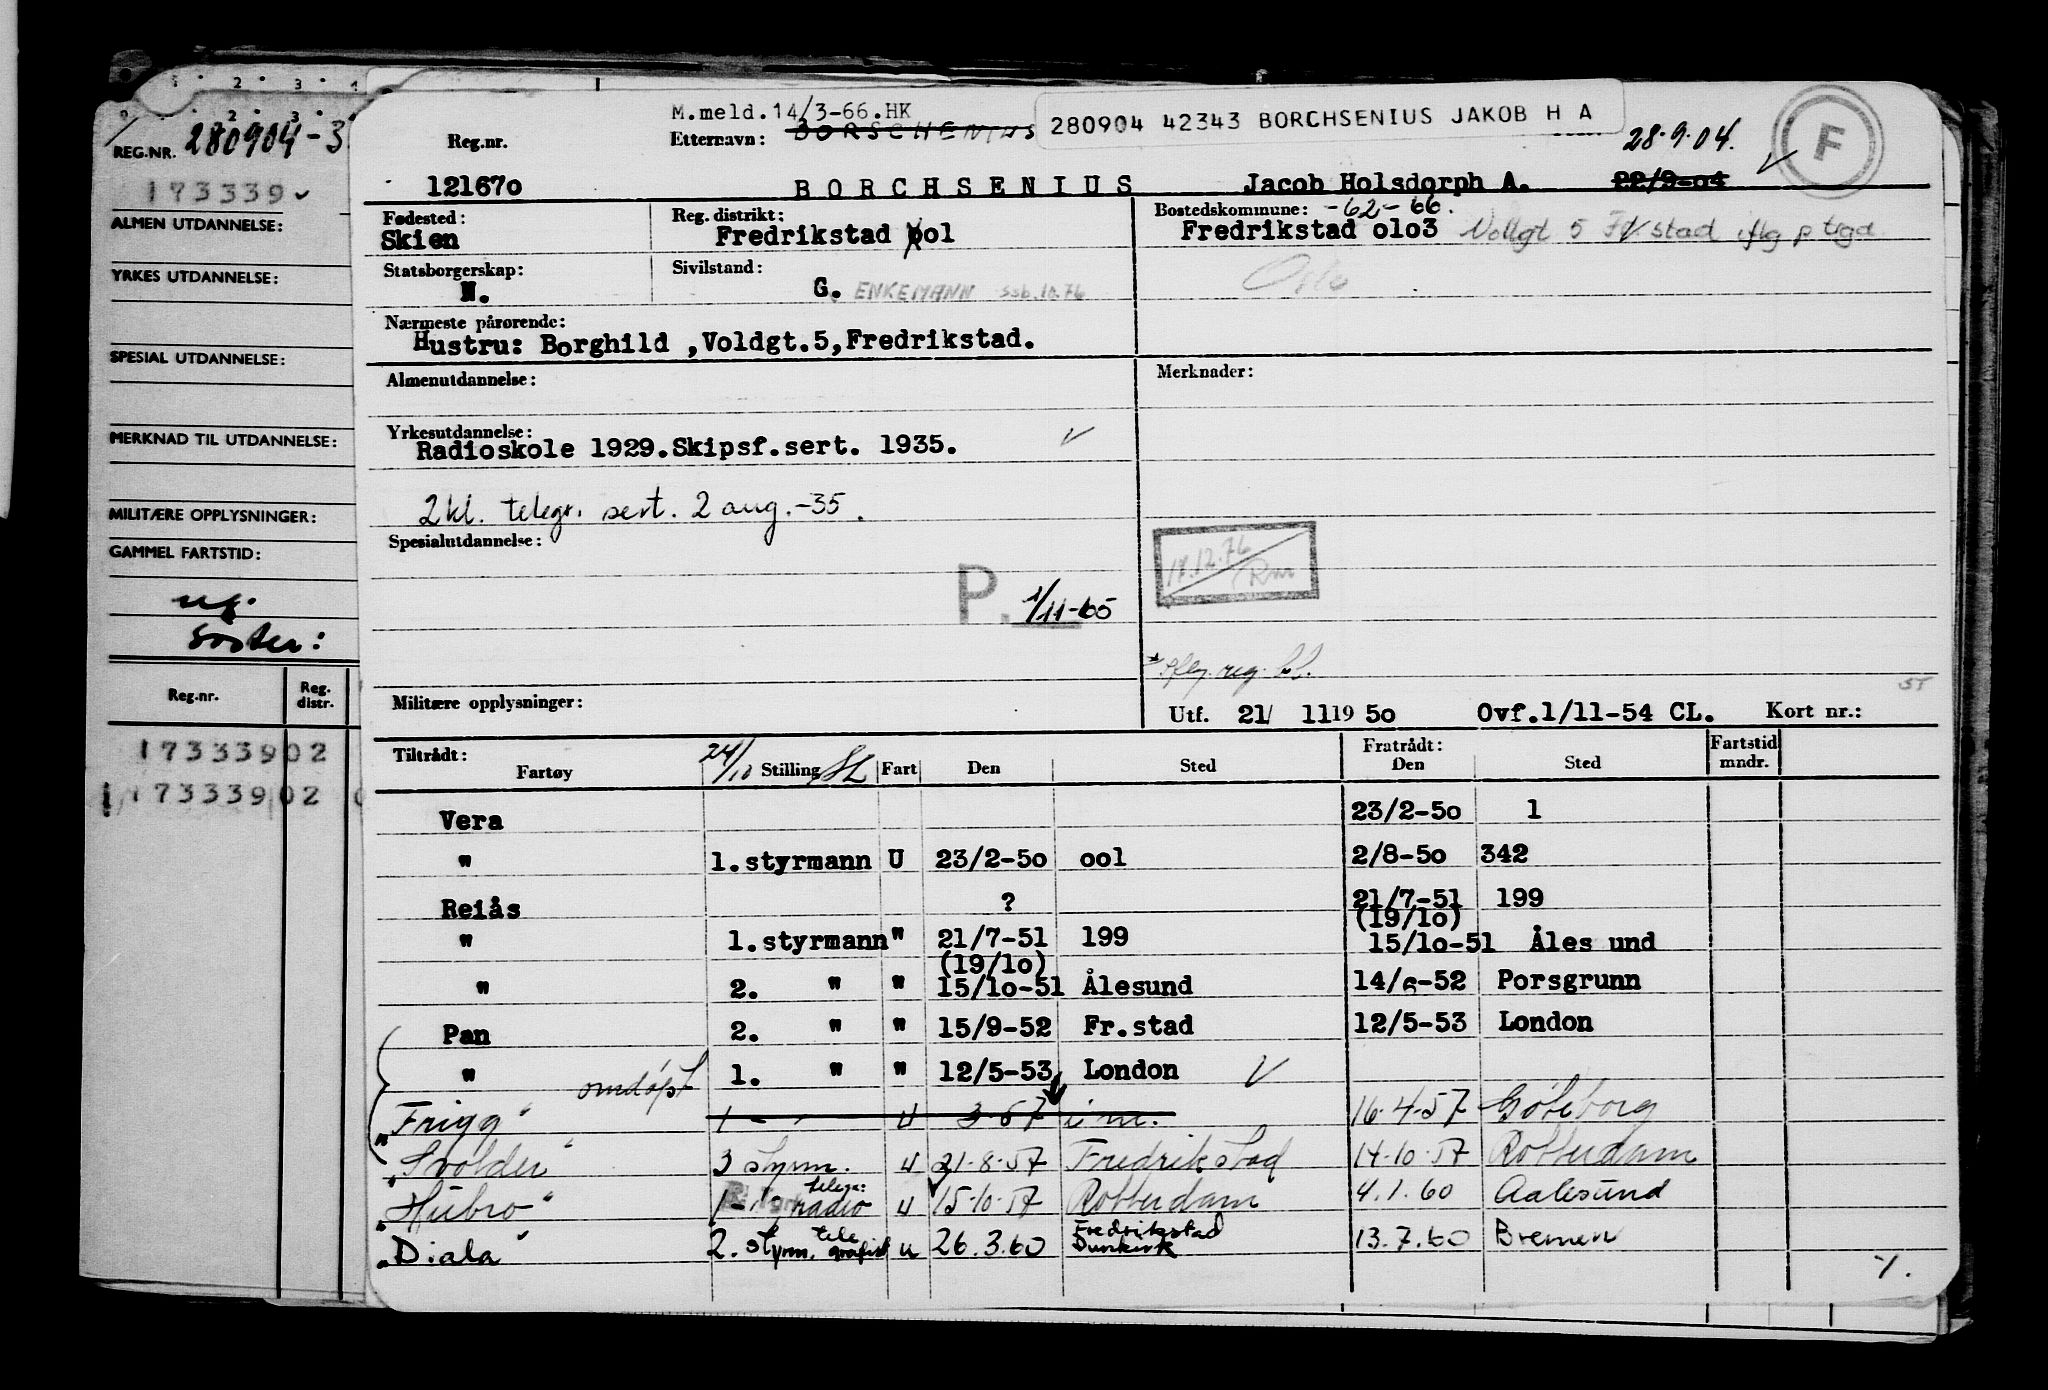 M.meld.14/3-66.HK
280904 42343 BORCHSENIUS JAKOB H A
Reg.nr.
Etternavn: BORSCHENIUS
28.9.04.
F
121670
BORCHSENIUS
Jacob Holsdorph A.
22/9-04
Fødested:
Skien
Reg. distrikt:
Fredrikstad ool
Bostedskommune: -62-66.
Fredrikstad olo3 Vollgt 5 Fr stad iflg p
Oslo
Statsborgerskap:
N.
Sivilstand:
G. ENKEMANN ssb.10.76
Nærmeste pårørende:
Hustru: Borghild ,Voldgt.5,Fredrikstad.
Almenutdannelse:
Merknader:
Yrkesutdannelse:
Radioskole 1929.Skipsf.sert. 1935.
2 kl. telegr. sert. 2 aug.-35.
Spesialutdannelse:
17.12.76
P. 1/11-65
iflg. reg. bl.
55
Militære opplysninger:
Utf. 21/ 1119 5o Ovf.1/11-54 CL. Kort nr.:
Tiltrådt: 24/10
Fratrådt:
Fartøy Stilling Fart Den Sted Den Sted Fartstid mndr.
Vera 23/2-5o 1
" 1.styrmann U 23/2-5o ool 2/8-5o 342
Reiås ? 21/7-51 199
(19/1o)
" 1.styrmann " 21/7-51 199 15/1o-51 Åles und
(19/1o)
" 2. " " 15/1o-51 Ålesund 14/6-52 Porsgrunn
Pan 2. " " 15/9-52 Fr.stad 12/5-53 London
" 1. " " 12/5-53 London
omdøpt
"Frigg" 1 - " u 3-57 i m. 16.4.57 Göteborg
"Svolder" 3 styrm. u 21.8.57 Fredrikstad 14.10.57 Rotterdam
"Hubro" 1 - " telegr. radio u 15.10.57 Rotterdam 4.1.60 Aalesund
"Diala" 2. styrm. tele grafist u 26.3.60 Fredrikstad Dunkirk 13.7.60 Bremen
REG.NR. 280904-3
173339
ALMEN UTDANNELSE:
YRKES UTDANNELSE:
SPESIAL UTDANNELSE:
MERKNAD TIL UTDANNELSE:
MILITÆRE OPPLYSNINGER:
GAMMEL FARTSTID:
Søster:
Reg.nr. Reg. distr.
173339 02
173339 02